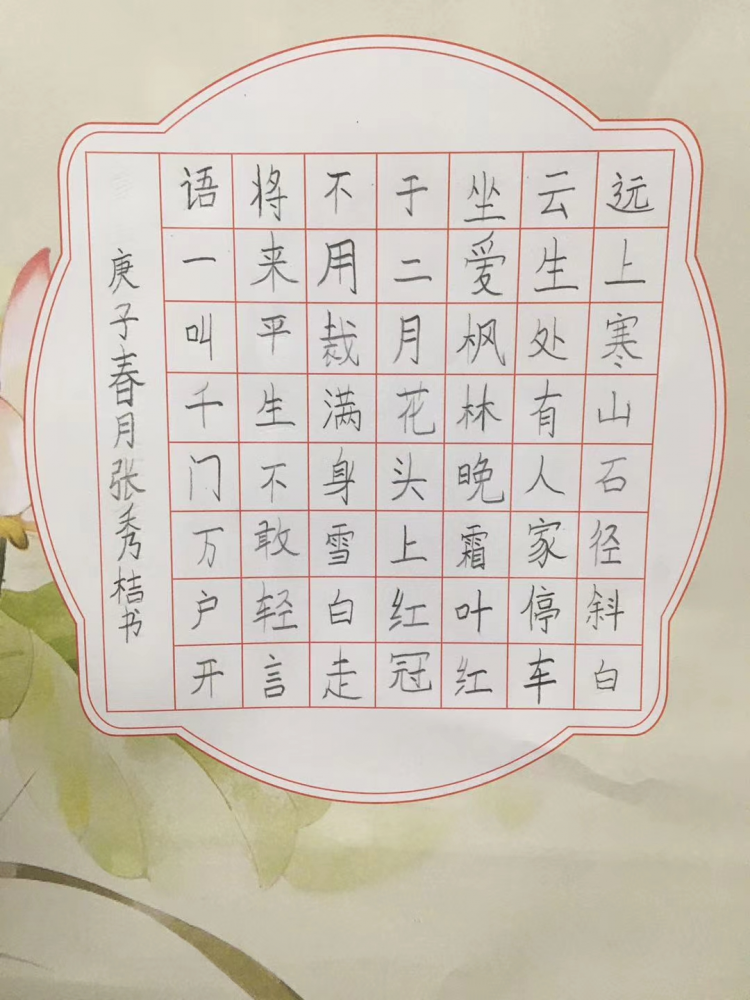 远上寒山石径斜白
云生处有人家停车
坐爱枫林晚霜叶红
于二月花头上红冠
不用裁满身雪白走
将来平生不敢轻言
语一叫千门万户开
庚子春月张秀桔书